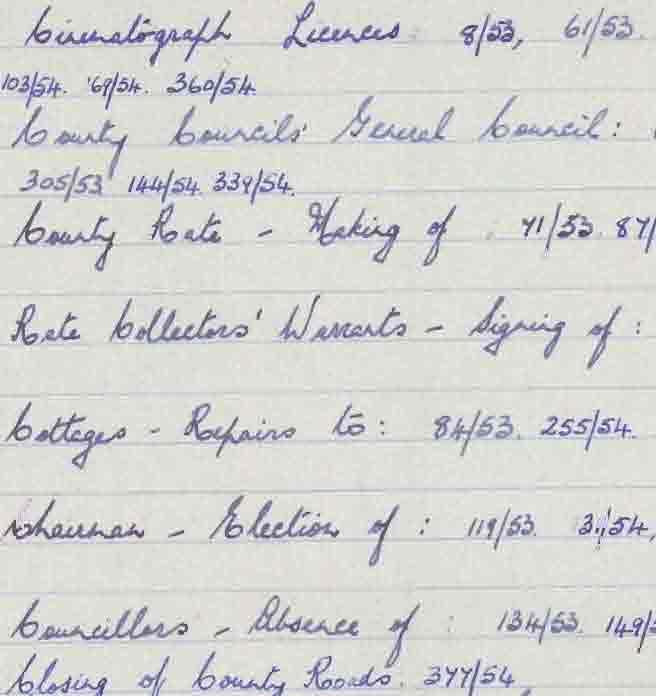 Cinematograph Licences: 8/53, 61/53.
103/54. 169/54. 360/54.
County Councils' General Council:
305/53 144/54 339/54.
County Rate - Making of : 71/53. 87/
Rate Collectors' Warrants - Signing of :
Cottages - Repairs to: 84/53. 255/54.
Chairman - Election of : 119/53.
Councillors - Absence of : 134/53. 149/
Closing of County Roads. 377/54,